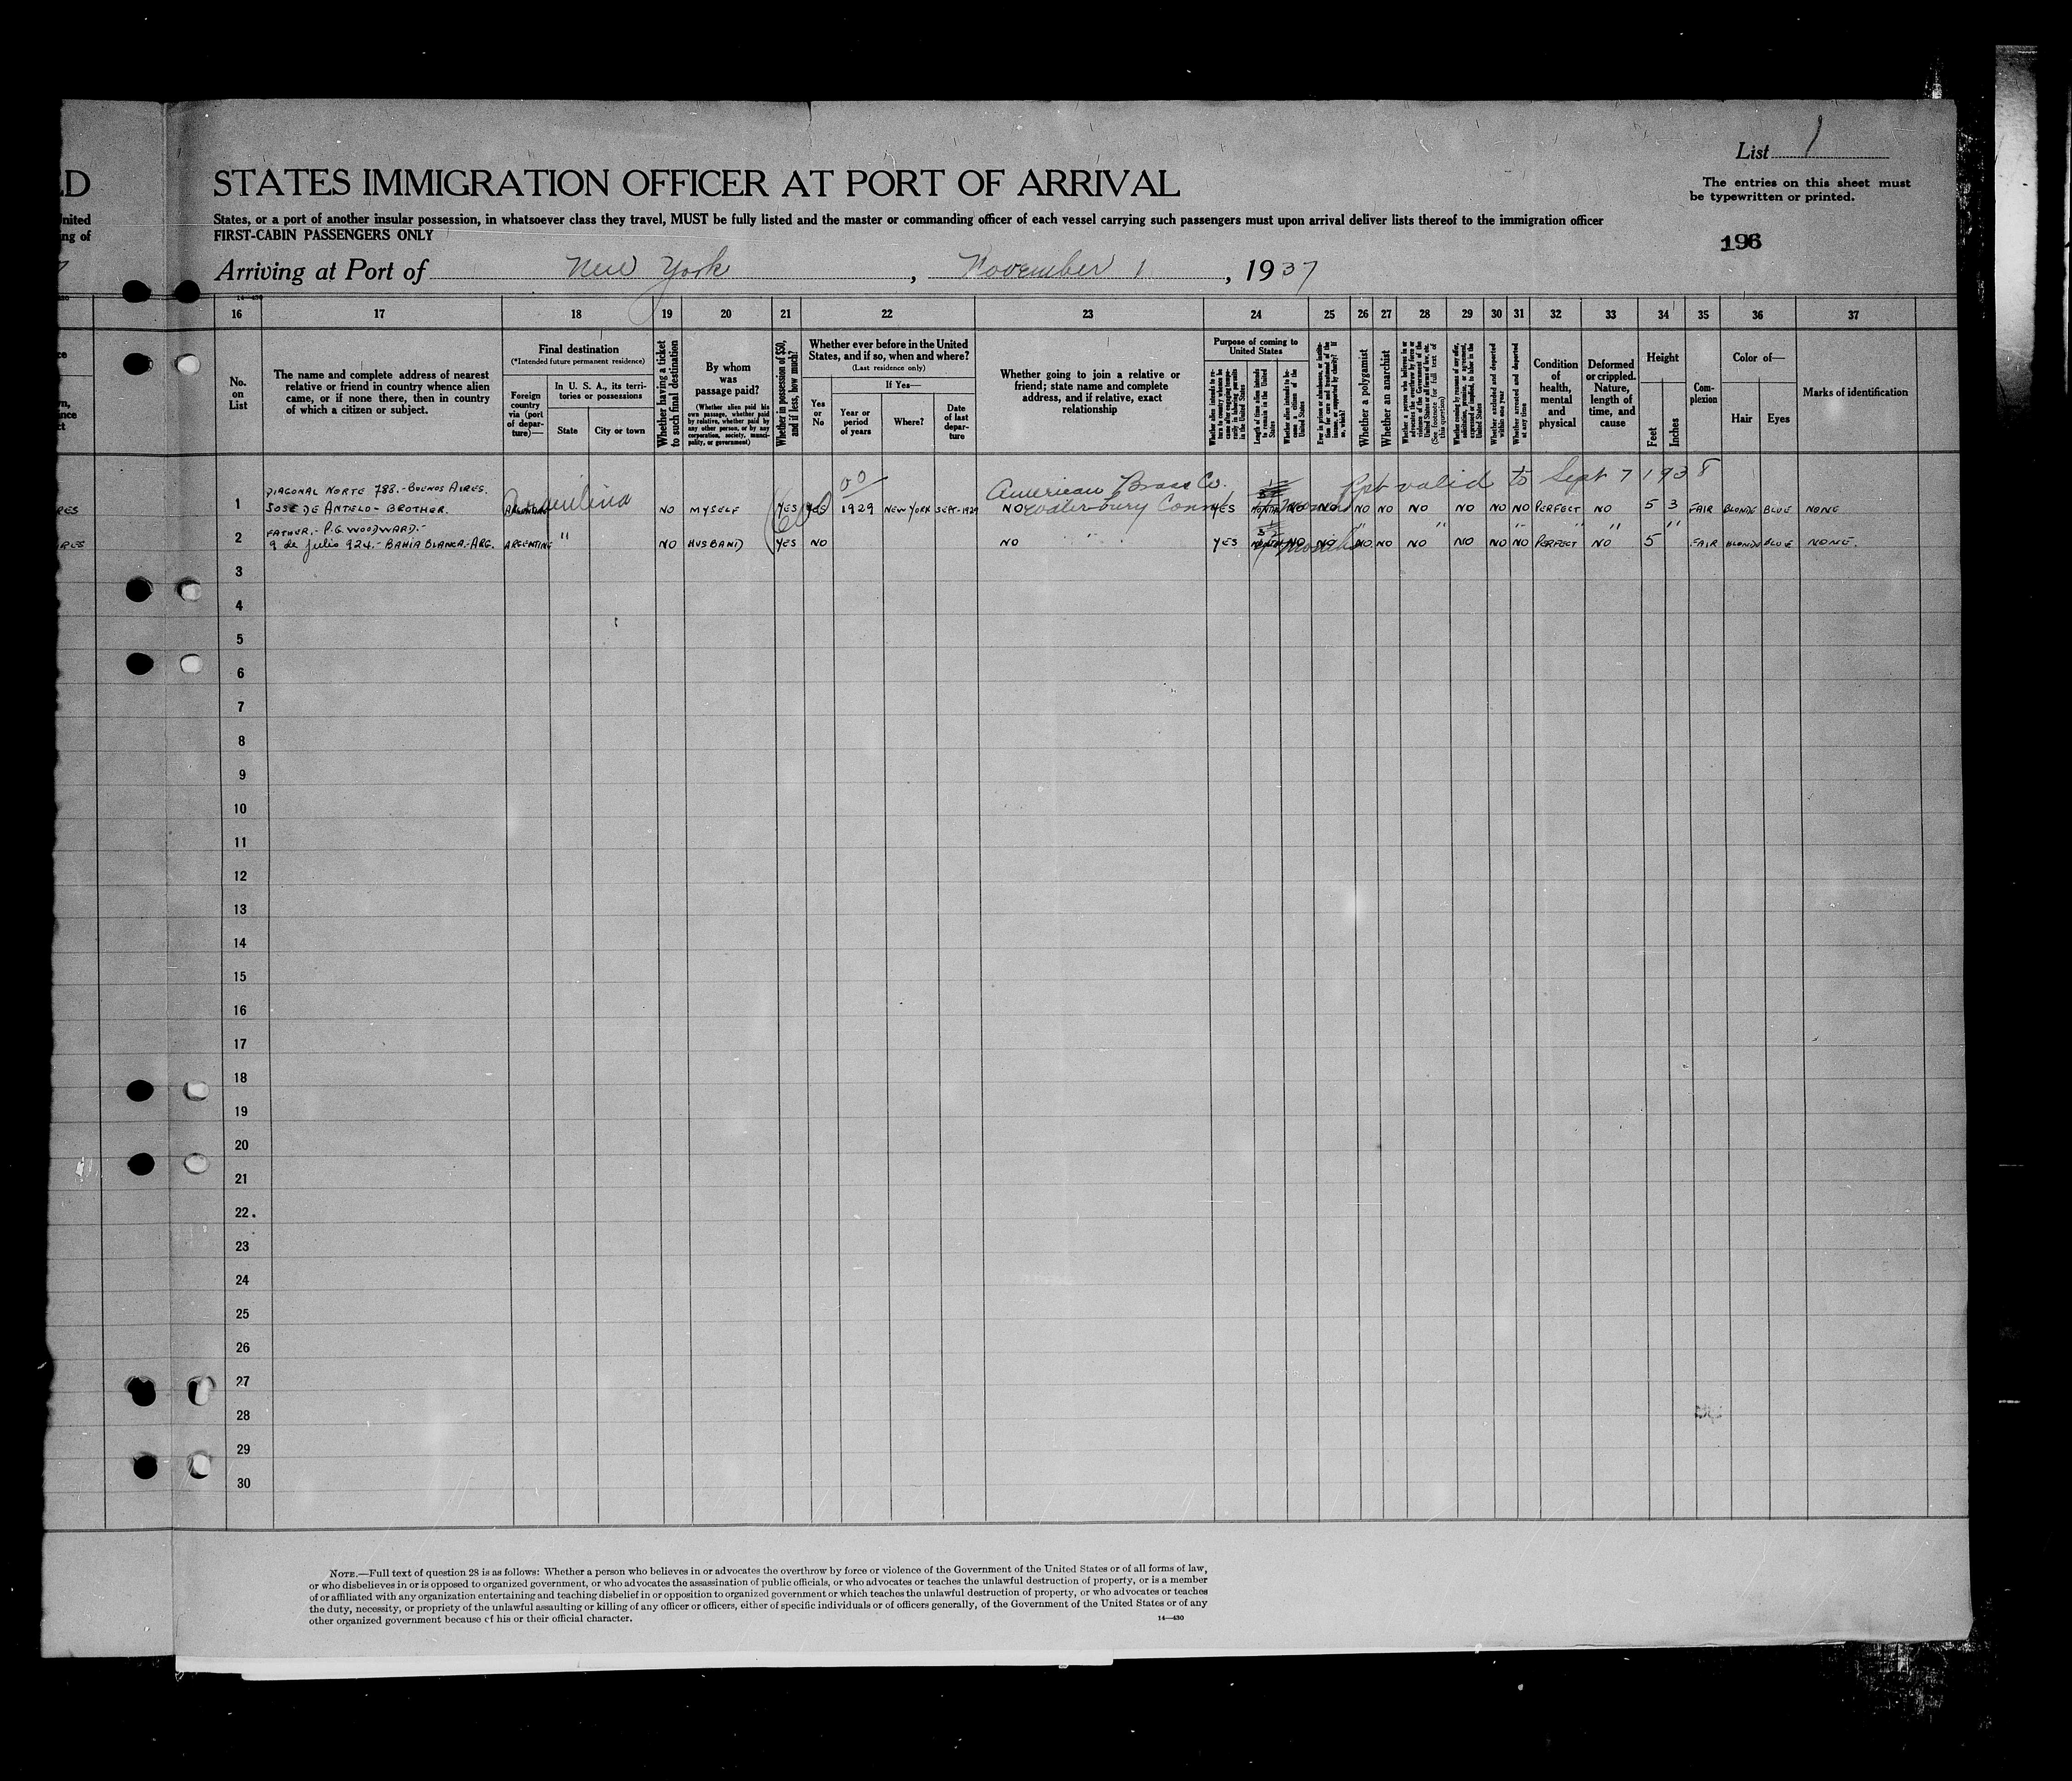 List 1
ED STATES IMMIGRATION OFFICER AT PORT OF ARRIVAL
The entries on this sheet must
be typewritten or printed.
United States, or a port of another insular possession, in whatsoever class they travel, MUST be fully listed and the master or commanding officer of each vessel carrying such passengers must upon arrival deliver lists thereof to the immigration officer
ing of FIRST-CABIN PASSENGERS ONLY
196
Arriving at Port of New York, November 1, 1937
14—430
16 17 18 19 20 21 22 23 24 25 26 27 28 29 30 31 32 33 34 35 36 37
No. on List
The name and complete address of nearest
relative or friend in country whence alien
came, or if none there, then in country
of which a citizen or subject.
Final destination
(*Intended future permanent residence)
Foreign country via (port of departure)—
In U. S. A., its territories or possessions
State
City or town
Whether having a ticket to such final destination
By whom was passage paid?
(Whether alien paid his own passage, whether paid by relative, whether paid by any other person, or by any corporation, society, municipality, or government)
Whether in possession of $50, and if less, how much?
Whether ever before in the United
States, and if so, when and where?
(Last residence only)
Yes or No
If Yes—
Year or period of years
Where?
Date of last departure
Whether going to join a relative or
friend; state name and complete
address, and if relative, exact
relationship
Purpose of coming to
United States
Length of time alien intends to remain in the United States
Whether alien intends to become a citizen of the United States
Whether a polygamist
Whether an anarchist
(See footnote for full text of this question)
Whether excluded and deported within one year
Whether arrested and deported at any time
Condition of health, mental and physical
Deformed or crippled. Nature, length of time, and cause
Height
Feet
Inches
Complexion
Color of—
Hair
Eyes
Marks of identification
American Brass Co. Ppt valid to Sept 7 1938
DIAGONAL NORTE 788.- BUENOS AIRES.
1 JOSE DE ANTELO - BROTHER. Argentina NO MYSELF YES YES 1929 NEW YORK SEPT-1929 NO Waterbury Conn YES NO NO NO NO NO NO NO NO PERFECT NO 5 3 FAIR BLONDE BLUE NONE
FATHER.- P.G. WOODWARD.-
2 9 de Julio 924.- BAHIA BLANCA.- ARG. ARGENTINE " NO HUSBAND YES NO NO " YES months NO NO NO NO NO NO NO NO PERFECT NO 5 FAIR BLONDE BLUE NONE.
3
4
5
6
7
8
9
10
11
12
13
14
15
16
17
18
19
20
21
22
23
24
25
26
27
28
29
30
NOTE.—Full text of question 28 is as follows: Whether a person who believes in or advocates the overthrow by force or violence of the Government of the United States or of all forms of law,
or who disbelieves in or is opposed to organized government, or who advocates the assassination of public officials, or who advocates or teaches the unlawful destruction of property, or is a member
of or affiliated with any organization entertaining and teaching disbelief in or opposition to organized government or which teaches the unlawful destruction of property, or who advocates or teaches
the duty, necessity, or propriety of the unlawful assaulting or killing of any officer or officers, either of specific individuals or of officers generally, of the Government of the United States or of any
other organized government because of his or their official character.
14—430